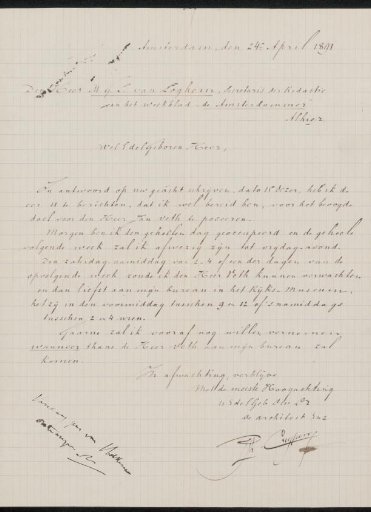 Amsterdam, den 24 April 1891
Den Heer M. g. L. van Loghem, Secretaris der Redactie
van het weekblad "de Amsterdammer"
Alhier
Wel Edelgeboren Heer,
In antwoord op uw geacht schrijven, dato 15 dezer, heb ik de
eer U te berichten, dat ik wel bereid ben, voor het beoogde
doel voor den Heer Jan Veth te poseeren.
Morgen ben ik den geheelen dag geoccupeerd en de geheele
volgende week zal ik afwezig zijn tot vrijdag-avond.
Den zaturdag namiddag vóór 2-4 of een der dagen van de
opvolgende week zoude ik den Heer Veth kunnen verwachten
en dan liefst aan mijn bureau in het Rijks-Museum,
hetzij in den voormiddag tusschen 9 en 12 of 's namiddags
tusschen 2 en 4 uren.
Gaarne zal ik vooraf nog willen vernemen
wanneer de Heer Veth aan mijn bureau zal
komen.
In afwachting, verblijve
Met de meeste Hoogachting
UEdelGeb. Dw. Dr
de architect
Cuypers